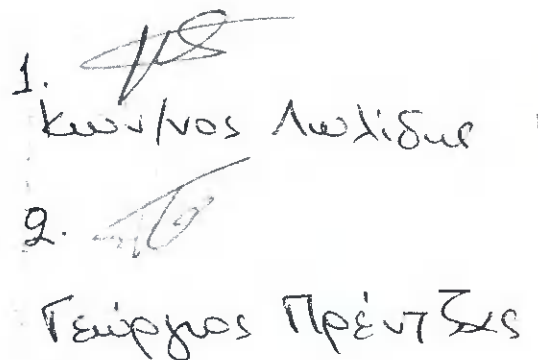 1.
Κων/νος Λωλίδης
2.
Γεώργιος Πρέντζας